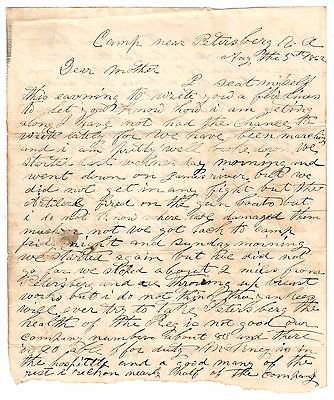 Camp near Petersberg V. A
Aug the 5th 1862
Dear Mother
I seat myself
this eavning to write you a few lines
to let you know how i am geting
along I have not had the chance to
write lately for We have been marching
and i am pretty well broke dow We
started last wednesday morning and
went down on James river but we
did not get in any fight but the
Artilery fired on the gun boats but
i do not know where they damaged them
much or not we got back to camp
friday night and sunday morning
we started again but we did not
go far we stoped about 2 miles from
Petersberg and are throwing up breast
works but i do not think the yankees
will ever try to take Petersberg the
health of the Reg is not good our
company numbers about 80 and there
is 30 able for duty in
the hospittle and a good many of the
rest i reckon nearly half of the company